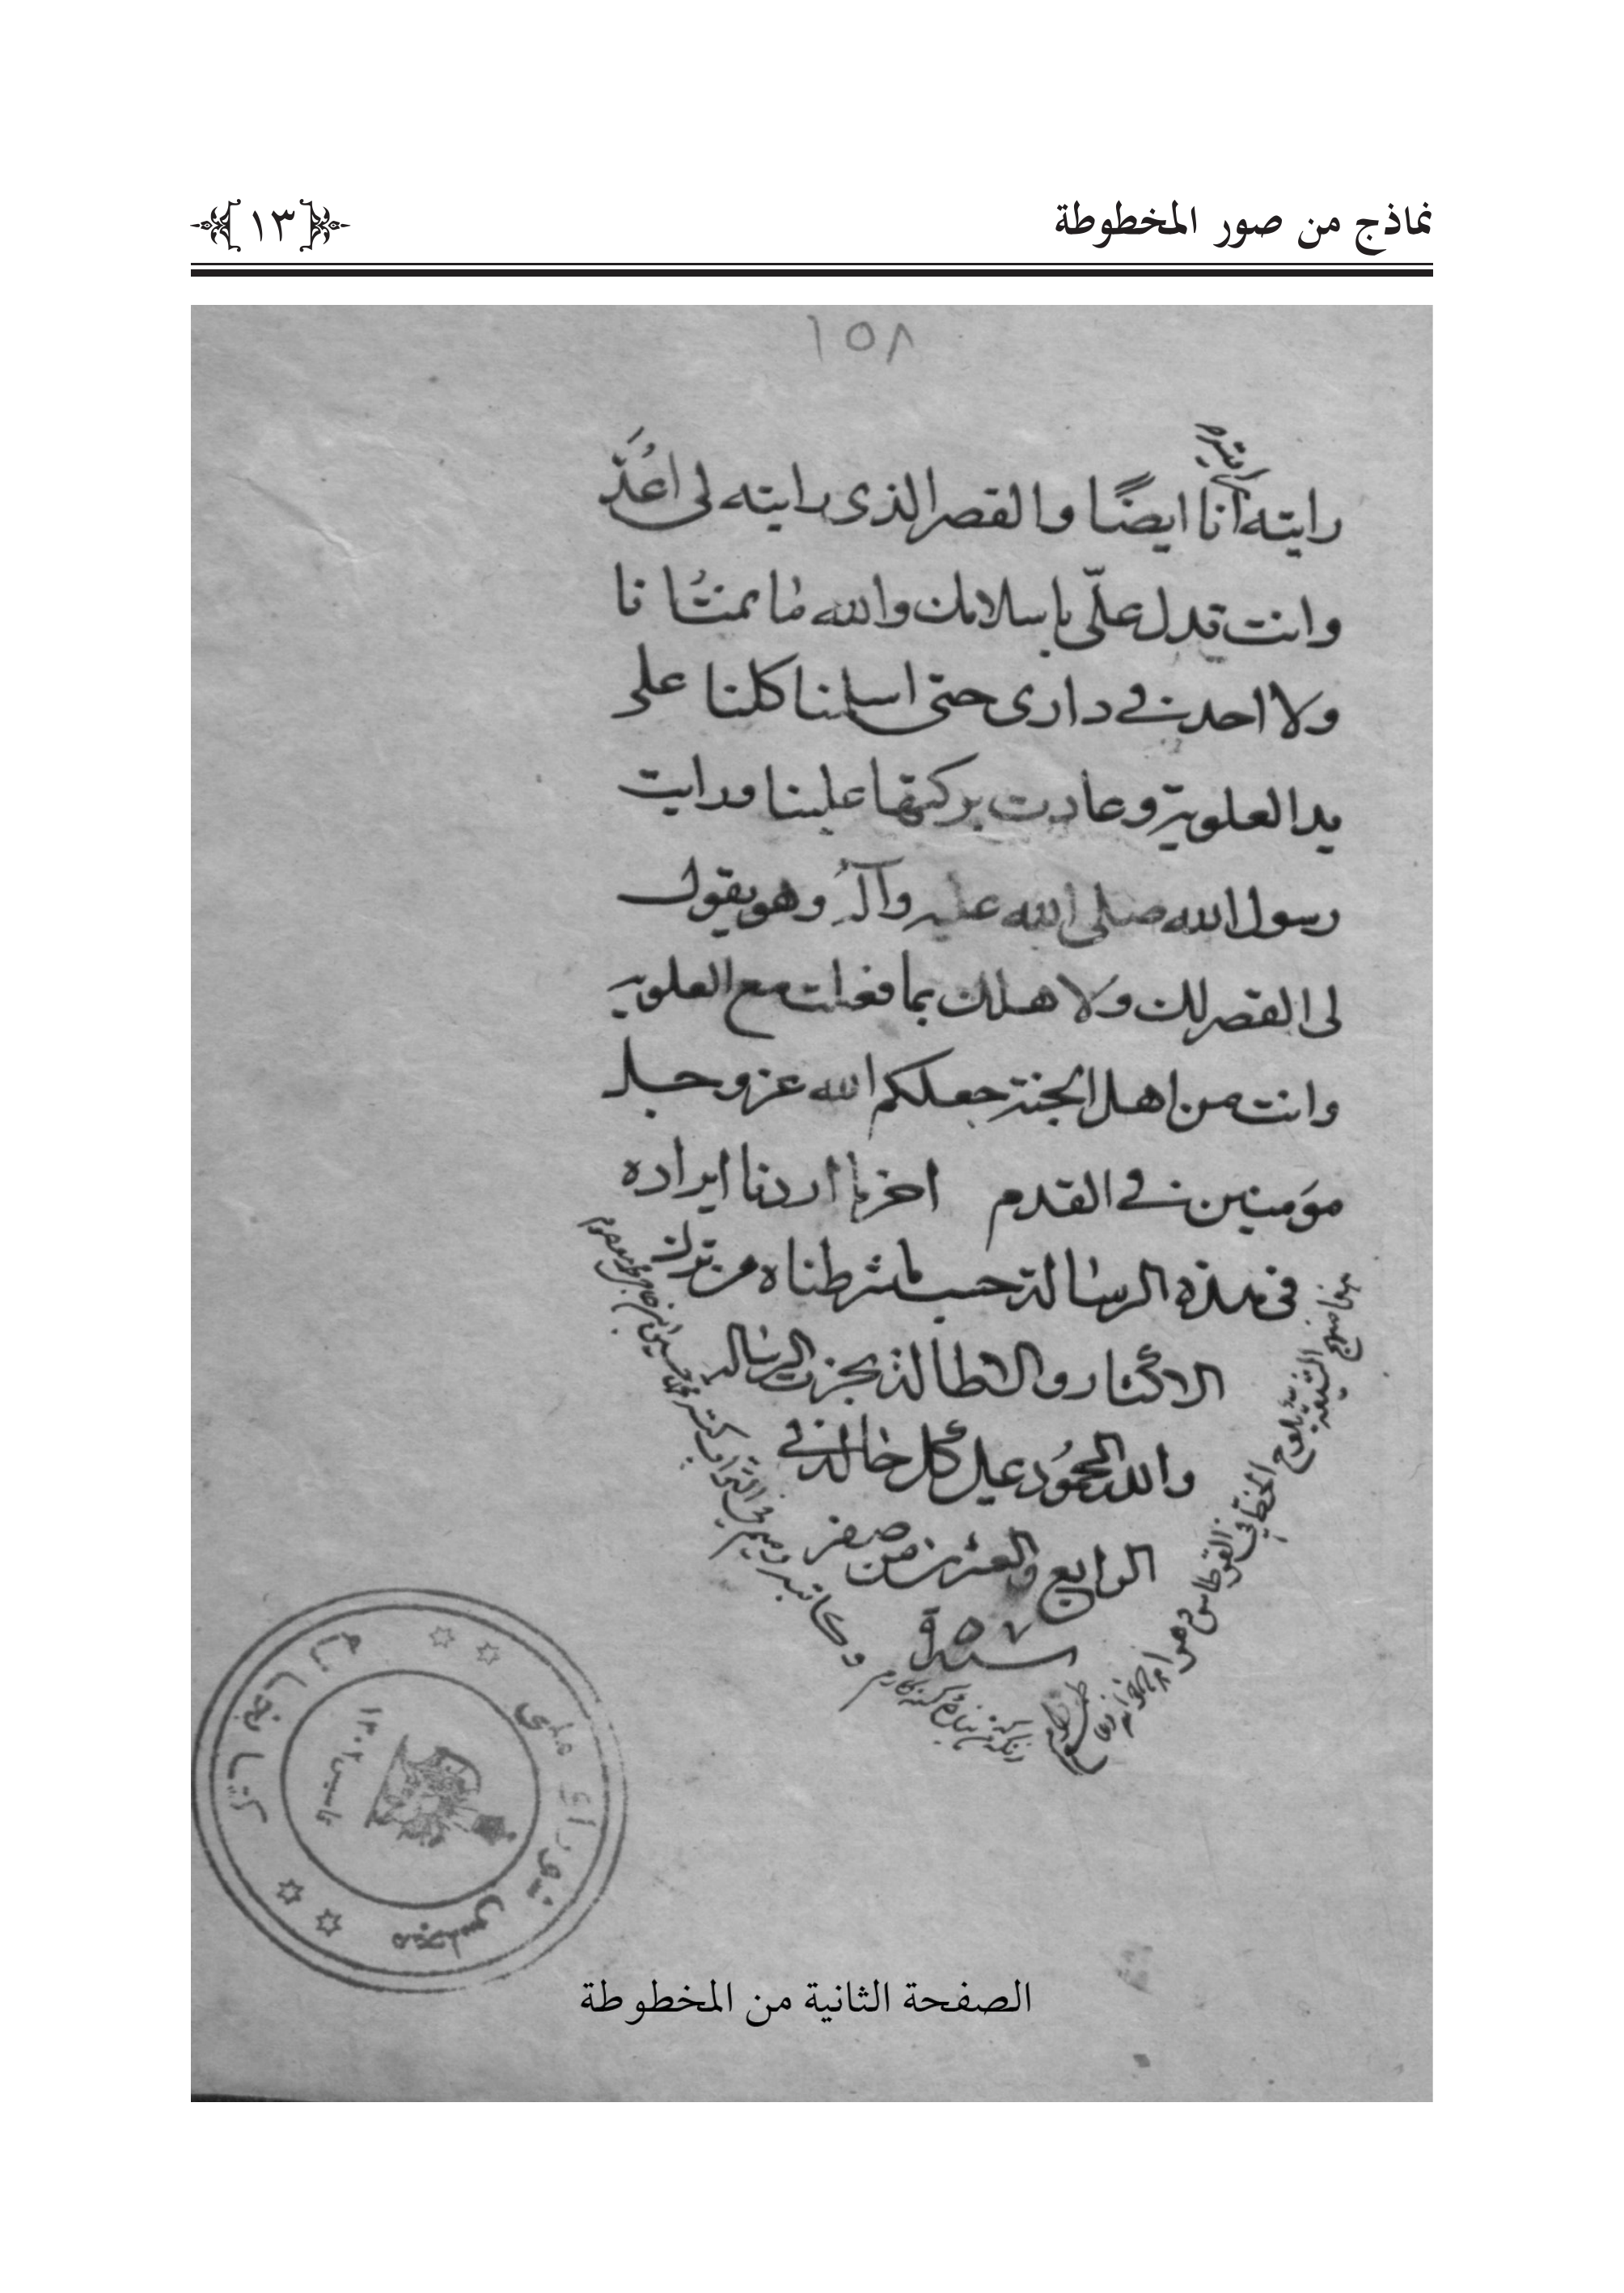 نماذج من صور المخطوطة
١٣
١٥٨
رايته انا ايضًا والقصر الذى رايته لى اعُدّ
وانت تدل علّى باسلامك والله مٰا نمتُ انا
ولا احد فى دارى حتى اسلمنا كلنا على
يد العلوية وعادت بركتها علينا ورايت
رسول الله صلى الله عليه وآله وهو يقول
لى القصر لك ولاهلك بما فعلت مع العلويه
وانت من اهل الجنة جعلكم الله عز وجل
مؤمنين فى القدم اخر ما اردنا ايراده
فى هذه الرسٰالة حسب ما شرطناه من ترك
الاكثار والاطالة نجزت الرسٰاله
والله المحمُود على كل حٰال فى
الرابع والعشرين من صفر
سنة
يلوح الخط فى القرطاس دهرا
وكاتبه رميم فى التراب
كتابخانه
مجلس شوراى ملى
تاسيس ١٣٠٢
الصفحة الثانية من المخطوطة